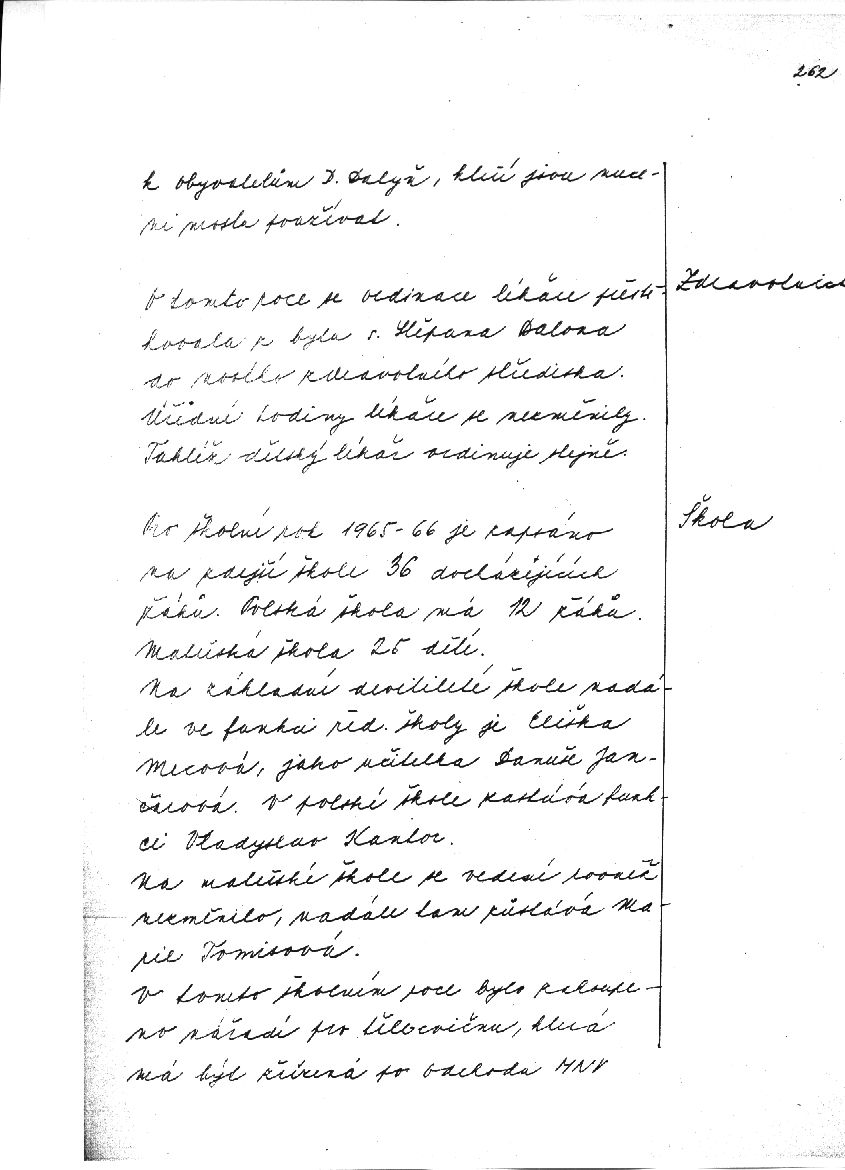 262
k obyvatelům D. Datyň, kteří jsou nuce-
ni mostu používat.
Zdravotnict
V tomto roce se ordinace lékaře přestě-
hovala z bytu s. Štěpana Dalona
do nového zdravotního střediska.
Úřední hodiny lékaře se nezměnily.
Taktéž dětský lékař ordinuje stejně.
Škola
Pro školní rok 1965-66 je zapsáno
na zdejší škole 36 docházejících
žáků. Polská škola má 12 žáků.
Mateřská škola 25 dětí.
Na základní devítileté škole nadá-
le ve funkci řed. školy je Eliška
Mecová, jako učitelka Danuše Jan-
čarová. V polské škole zastává funk-
ci Vladyslav Kantor.
Na mateřské škole se vedení rovněž
nezměnilo, nadále tam zůstává Ma-
rie Tomisová.
V tomto školním roce bylo zakoupe-
no nářadí pro tělocvičnu, která
má být zřízena po odchodu MNV